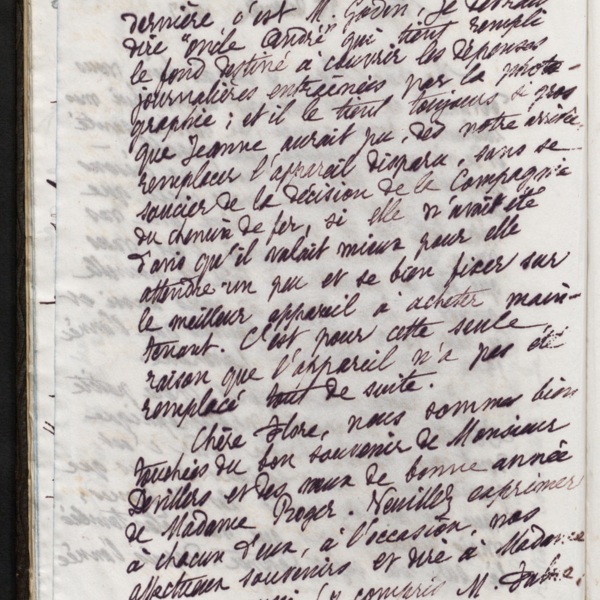 dernière c'est M. Godin, je devrais
dire "oncle André" qui tient rempli
le fond destiné à couvrir les dépenses
journalières entraînées par la photo-
graphie ; et il le tient toujours si gros
que Jeanne aurait pu, dès notre arrivée,
remplacer l'appareil disparu, sans se
soucier de la décision de la Compagnie
du chemin de fer, si elle n'avait été
d'avis qu'il valait mieux pour elle
attendre un peu et se bien fixer sur
le meilleur appareil à acheter main-
tenant. C'est pour cette seule
raison que l'appareil n'a pas été
remplacé tout de suite.
Chère Flore, nous sommes bien
touchées du bon souvenir de Monsieur
Devillers et des vœux de bonne année
de Madame Roger. Veuillez exprimer
à chacun d'eux, à l'occasion, nos
affectueux souvenirs et dire à Madame
(y compris M.